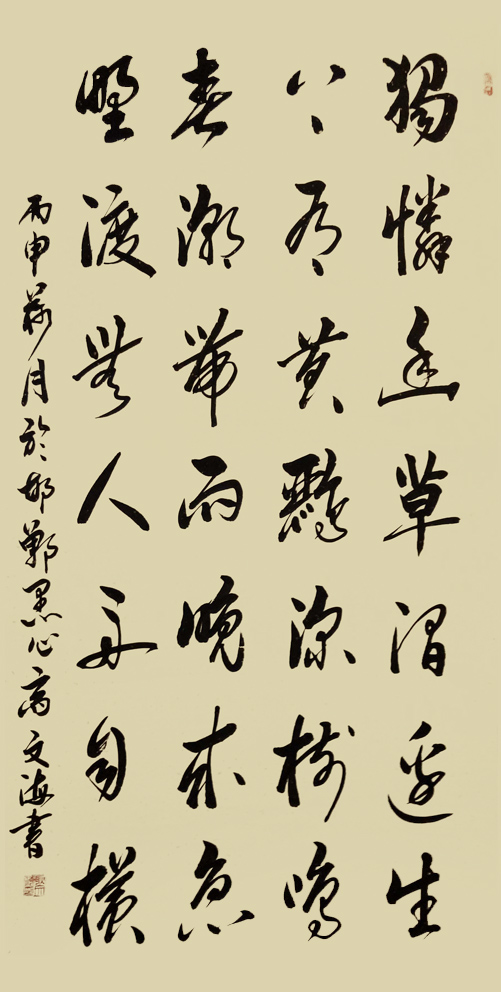 獨憐幽草澗邊生
上有黃鸝深樹鳴
春潮帶雨晚來急
野渡無人舟自橫
丙申月於邯鄲墨心高文海書